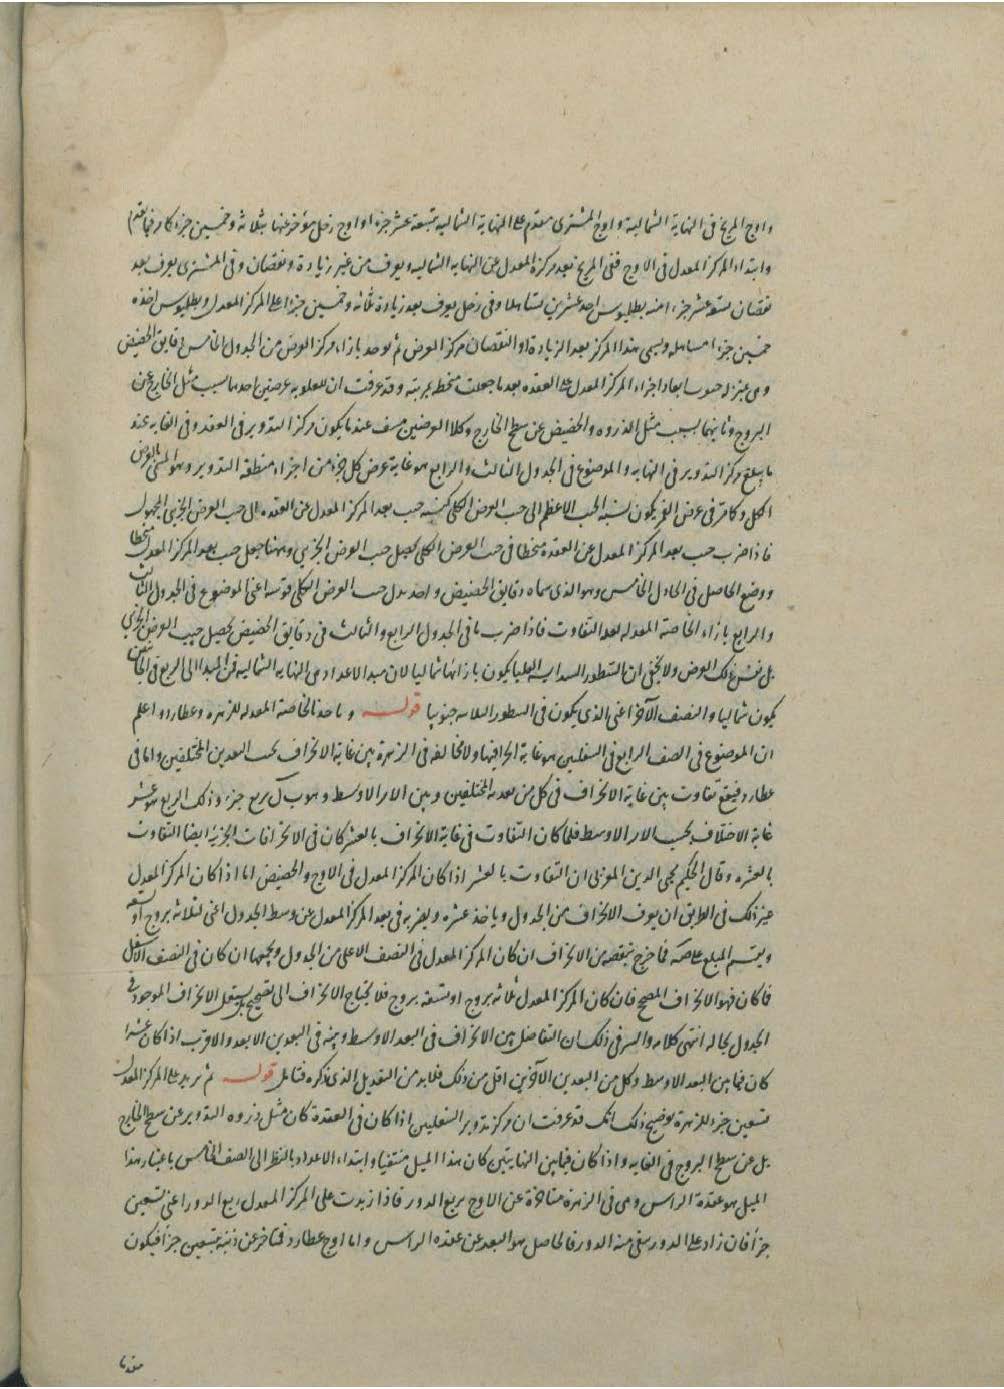 واوج المريخ فى النهاية الشمالية واوج المشترى متقدم على النهاية الشمالية بتسعة عشر جزءا واوج زحل مؤخر عنها بثلاثة وخمسين جزءا كما مر فيما تقدم
وابتداء المركز المعدل فى الاوج ففى المريخ بعد مركزه المعدل عن النهاية الشمالية ويعرف من غير زيادة ونقصان وفى المشترى يعرف بعد
نقصان تسعة عشر جزءا منه بطليوس احد عشرين تساهلا وفى زحل يعرف بعد زيادة ثلثة وخمسين جزءا على المركز المعدل وبطليوس اخذه
خمسين جزءا مساهلة ويسمى هذا المركز بعد الزيادة او النقصان مركز العرض ثم يوخذ بازاء مركز العرض من الجدول الخامس دقايق الحضيض
وهى بمنزلة جيوب ابعاد اجزاء المركز المعدل عن العقدة بعد ما جعلت منحطة بمرتبة وقد عرفت ان للعلوية عرضين احدهما بسبب ميل الخارج عن
البروج وثانيهما بسبب ميل الذروة والحضيض عن سطح الخارج وكلا العرضين عند ما يكون مركز التدوير فى العقدة وفى الغاية عند
ما يبلغ مركز التدوير فى النهاية والموضوع فى الجدول الثالث والرابع هو غاية عرض كل جزء من اجزاء منطقة التدوير وهو المسمى بالعرض
الكلى وكما مر فى عرض القمر يكون نسبة الجيب الاعظم الى جيب العرض الكلى كنسبة جيب بعد المركز المعدل عن العقدة الى جيب العرض الجزئى المجهول
فاذا ضرب جيب بعد المركز المعدل عن العقدة منحطا فى جيب العرض الكلى يحصل جيب العرض الجزئى وههنا جعل جيب بعد المركز المعدل منحطا
ووضع الحاصل فى الجدول الخامس وهو الذى سماه دقايق الحضيض واخذ بدل جيب العرض الكلى قوسه اعنى الموضوع فى الجدول الثالث
والرابع بازاء الخاصة المعدلة لعلة التفاوت فاذا ضرب ما فى الجدول الرابع والثالث فى دقايق الحضيض يحصل جيب العرض الجزئى
بل نفس ذلك العرض ولا يخفى ان السطور العليا يكون بازائها شماليا لان مبدا الاعداد من النهاية الشمالية فمن المبدا الى الربع فى الجانبين
يكون شماليا والنصف الآخر اعنى الذى يكون فى السطور جنوبيا قوله وناخذ بالخاصة المعدلة للزهرة وعطارد اعلم
ان الموضوع فى الصف الرابع فى السفليين هو غاية انحرافيهما ولا مخالفة فى الزهرة بين غاية الانحراف بحسب البعدين المختلفين واما فى
عطارد فيقع تفاوت بين غاية الانحراف فى كل من بعديه المختلفين وبين الامر الاوسط وهو ب ل بربع جزء وذلك الربع هو عشر
غاية الاختلاف بحسب الامر الاوسط فلما كان التفاوت فى غاية الانحراف بالعشر كان فى الانحرافات الجزئية ايضا التفاوت
بالعشر وقال الحكيم محيى الدين المغربى ان التفاوت بالعشر اذا كان المركز المعدل فى الاوج والحضيض اما اذا كان المركز المعدل
غير ذلك فى الطريق ان يعرف الانحراف من الجدول وياخذ عشره ويضربه فى بعد المركز المعدل عن وسط الجدول اعنى ثلاثة بروج او تسعة
ويقسم المبلغ على صه فما خرج ينقصه من الانحراف ان كان المركز المعدل فى النصف الاعلى من الجدول ويجمعها ان كان فى النصف الاسفل
فما كان فهو الانحراف المصحح فان كان المركز المعدل ثلاثة بروج او تسعة بروج فلا يحتاج الانحراف الى تصحيح بل يستعمل الانحراف الموجود فى
الجدول بحاله انتهى كلامه والسر فى ذلك ان التفاضل بين الانحراف فى البعد الاوسط وبينه فى البعدين الابعد والاقرب اذا كان عشرا
كان فيما بين البعد الاوسط وكل من البعدين الآخرين اقل من ذلك فلا بد من التعديل الذى ذكره فتامل قوله ثم نزيد على المركز المعدل
تسعين جزءا للزهرة توضيح ذلك انك قد عرفت ان مركز تدوير السفليين اذا كان فى العقدة كان ميل ذروة التدوير عن سطح الخارج
بل عن سطح البروج فى الغاية واذا كان فيما بين النهايتين كان هذا الميل منتفيا وابتداء الاعداد بالنظر الى الصف الخامس باعتبار هذا
الميل هو عقدة الراس وهى فى الزهرة متاخرة عن الاوج بربع الدور فاذا زيدت على المركز المعدل ربع الدور اعنى تسعين
جزأ فان زاد على الدور يبقى منه الدور فالحاصل هو البعد عن عقدة الراس واما اوج عطارد فمتاخر عن ذنبه بتسعين جزأ فيكون